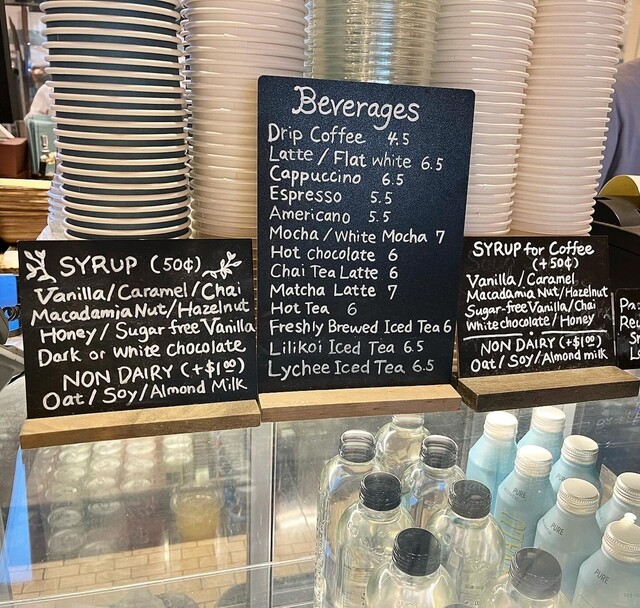 SYRUP (50¢)
Vanilla/Caramel/Chai
Macadamia Nut/Hazelnut
Honey/Sugar free Vanilla
Dark or white chocolate
NON DAIRY (+$1.00)
Oat/Soy/Almond Milk
Beverages
Drip Coffee 4.5
Latte/Flat white 6.5
Cappuccino 6.5
Espresso 5.5
Americano 5.5
Mocha/White Mocha 7
Hot chocolate 6
Chai Tea Latte 6
Matcha Latte 7
Hot Tea 6
Freshly Brewed Iced Tea 6
Lilikoi Iced Tea 6.5
Lychee Iced Tea 6.5
SYRUP for Coffee
(+50¢)
Vanilla/Caramel
Macadamia Nut/Hazelnut
Sugar-free Vanilla/Chai
White chocolate/Honey
NON DAIRY (+$1.00)
Oat/Soy/Almond milk
PURE
PURE
PURE